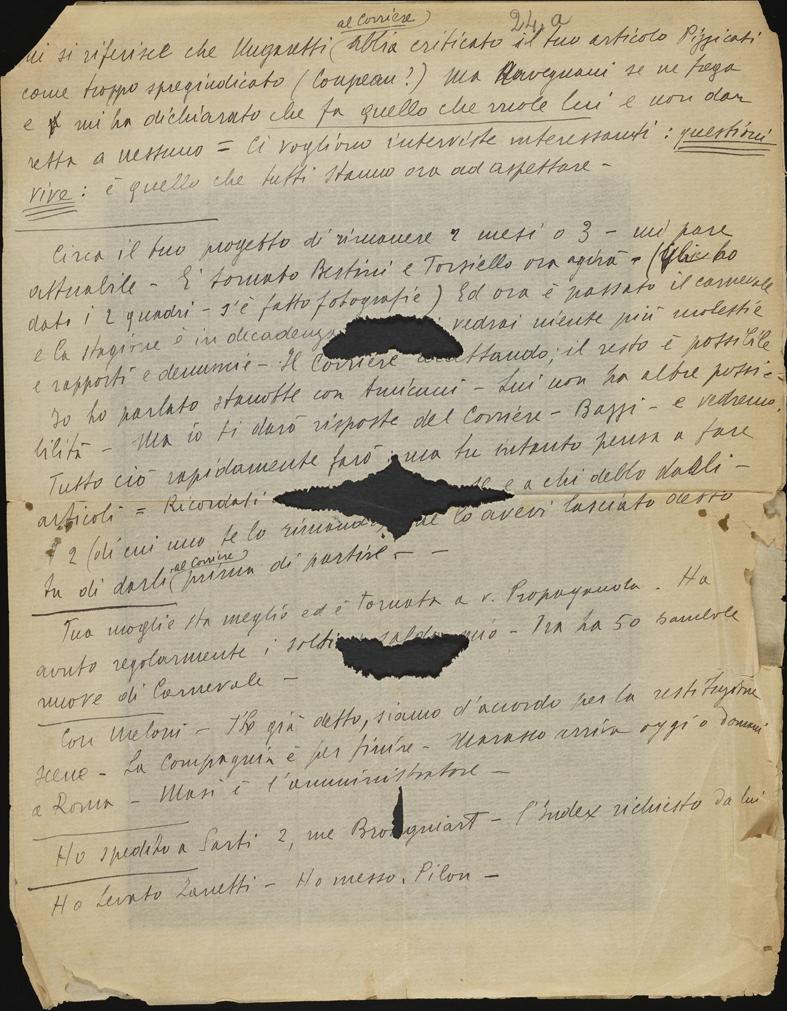 al Corriere
24.a
mi si riferisce che Ungaretti abbia criticato il tuo articolo Pizzicati
come troppo spregiudicato (Coupeau?) Ma Ravegnani se ne frega
e mi ha dichiarato che fa quello che vuole lui e non dar
retta a nessuno = Ci vogliono interviste interessanti : questioni
vive : è quello che tutti stanno ora ad aspettare -
Circa il tuo progetto di rimanere 2 mesi o 3 - mi pare
attuabile - E' tornato Bestini e Torsiello ora agirà - (gli ho
dato i 2 quadri - s'è fatto fotografie) Ed ora è passato il carnevale
e la stagione è in decadenza vedrai niente più molestie
e rapporti e denuncie - Il Corriere ; il resto è possibile
Io ho parlato stanotte con Amicucci - Lui non ha altre possi-
bilità - Ma io ti darò risposte del Corriere - Bazzi - e vedremo.
Tutto ciò rapidamente farò ma tu intanto pensa a fare
articoli = Ricordati e a chi dello
i 2 (di cui uno te lo lo avevi lasciato detto
tu di darli al Corriere prima di partire - -
Tua moglie sta meglio ed è tornata a v. Propaganda. Ha
avuto regolarmente i soldi - Ira ha 50 bambole
nuove di Carnevale -
Con Meloni - T'ho già detto, siamo d'accordo per la restituzione
scene - La Compagnia è per finire - Marasco arriva oggi o domani
a Roma - Masi è l'amministratore -
Ho spedito a Sarti 2, me - l'Index richiesto da lui
Ho levato Zanetti - Ho messo. Pilon -